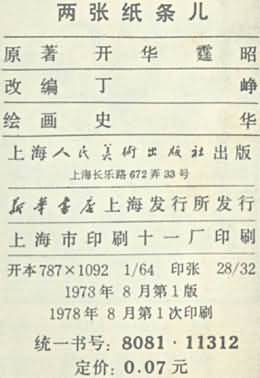 两张纸条儿
原著 开华 霆昭
改编 丁 峥
绘画 史 华
上海人民美術出版社出版
上海长乐路672弄33号
新华書店上海发行所发行
上海市印刷十一厂印刷
开本787×1092 1/64 印张 28/32
1973年8月第1版
1978年8月第1次印刷
统一书号：8081·11312
定价：0.07元